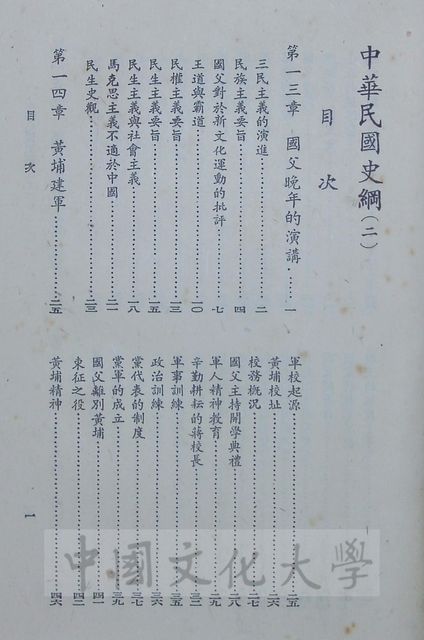 中華民國史綱(二)
目次
第一三章 國父晚年的演講……一
三民主義的演進……二
民族主義要旨……四
國父對於新文化運動的批評……七
王道與霸道……一〇
民權主義要旨……一三
民生主義要旨……一五
民生主義與社會主義……一八
馬克思主義不適於中國……二一
民生史觀……二三
第一四章 黃埔建軍……二五
目次
軍校起源……二五
黃埔校址……二六
校務概況……二七
國父主持開學典禮……二八
軍人精神教育……二九
辛勤耕耘的蔣校長……三二
軍事訓練……三五
政治訓練……三六
黨代表的制度……三七
黨軍的成立……三九
國父離別黃埔……四一
東征之役……四二
黃埔精神……四六
一
中國文化大學